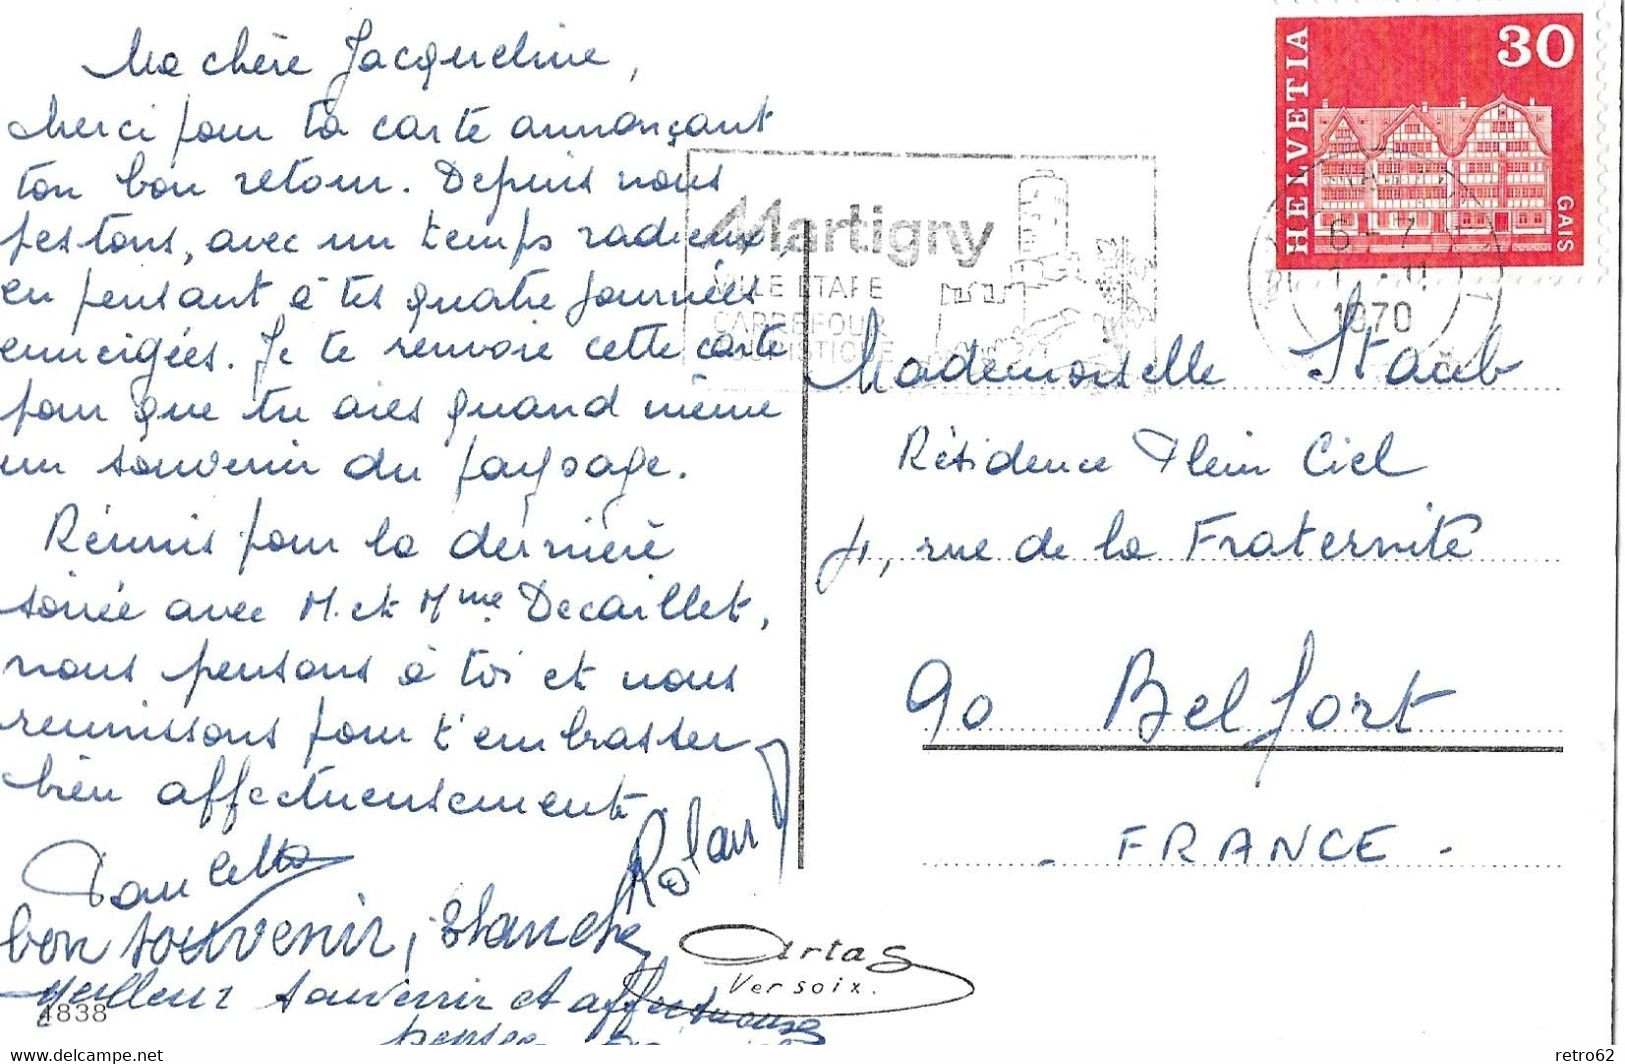 Ma chère Jacqueline,
Merci pour ta carte annonçant
ton bon retour. Depuis nous
restons, avec un temps radieux,
en pensant à tes quatre journées
enneigées. Je te renvoie cette carte
pour que tu aies quand même
un souvenir du paysage.
Réunis pour la dernière
soirée avec M. et Mme Decaillet,
nous pensons à toi et nous
reunissons pour t'embrasser
bien affectueusement
Paulette
Roland
bon souvenir, Blanche
Meilleur souvenir et affectueuse
pensée
4838
Artas
Versoix.
Martigny
VILLE ETAPE
CARREFOUR
TOURISTIQUE
HELVETIA
30
GAIS
1970
Mademoiselle Staub
Résidence Plein Ciel
4, rue de la Fraternité
90 Belfort
- FRANCE -
retro62
delcampe.com